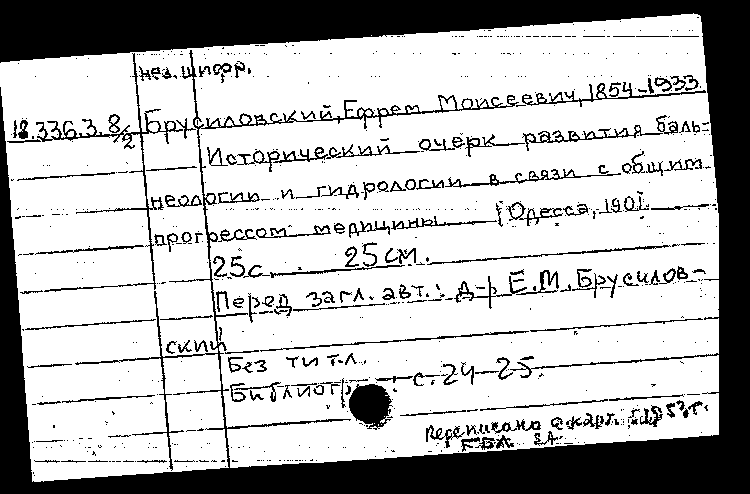 нез. шифр.
18.336.3.8/2 Брусиловский, Ефрем Моисеевич, 1854-1933
Исторический очерк развития баль=
неологии и гидрологии в связи с общим
прогрессом медицины [Одесса, 190].
25с. 25 см.
Перед загл. авт.: д-р Е.М. Брусилов-
ский
Без титл.
с. 24-25.
Переписано с карт. 1953г.
ГБЛ